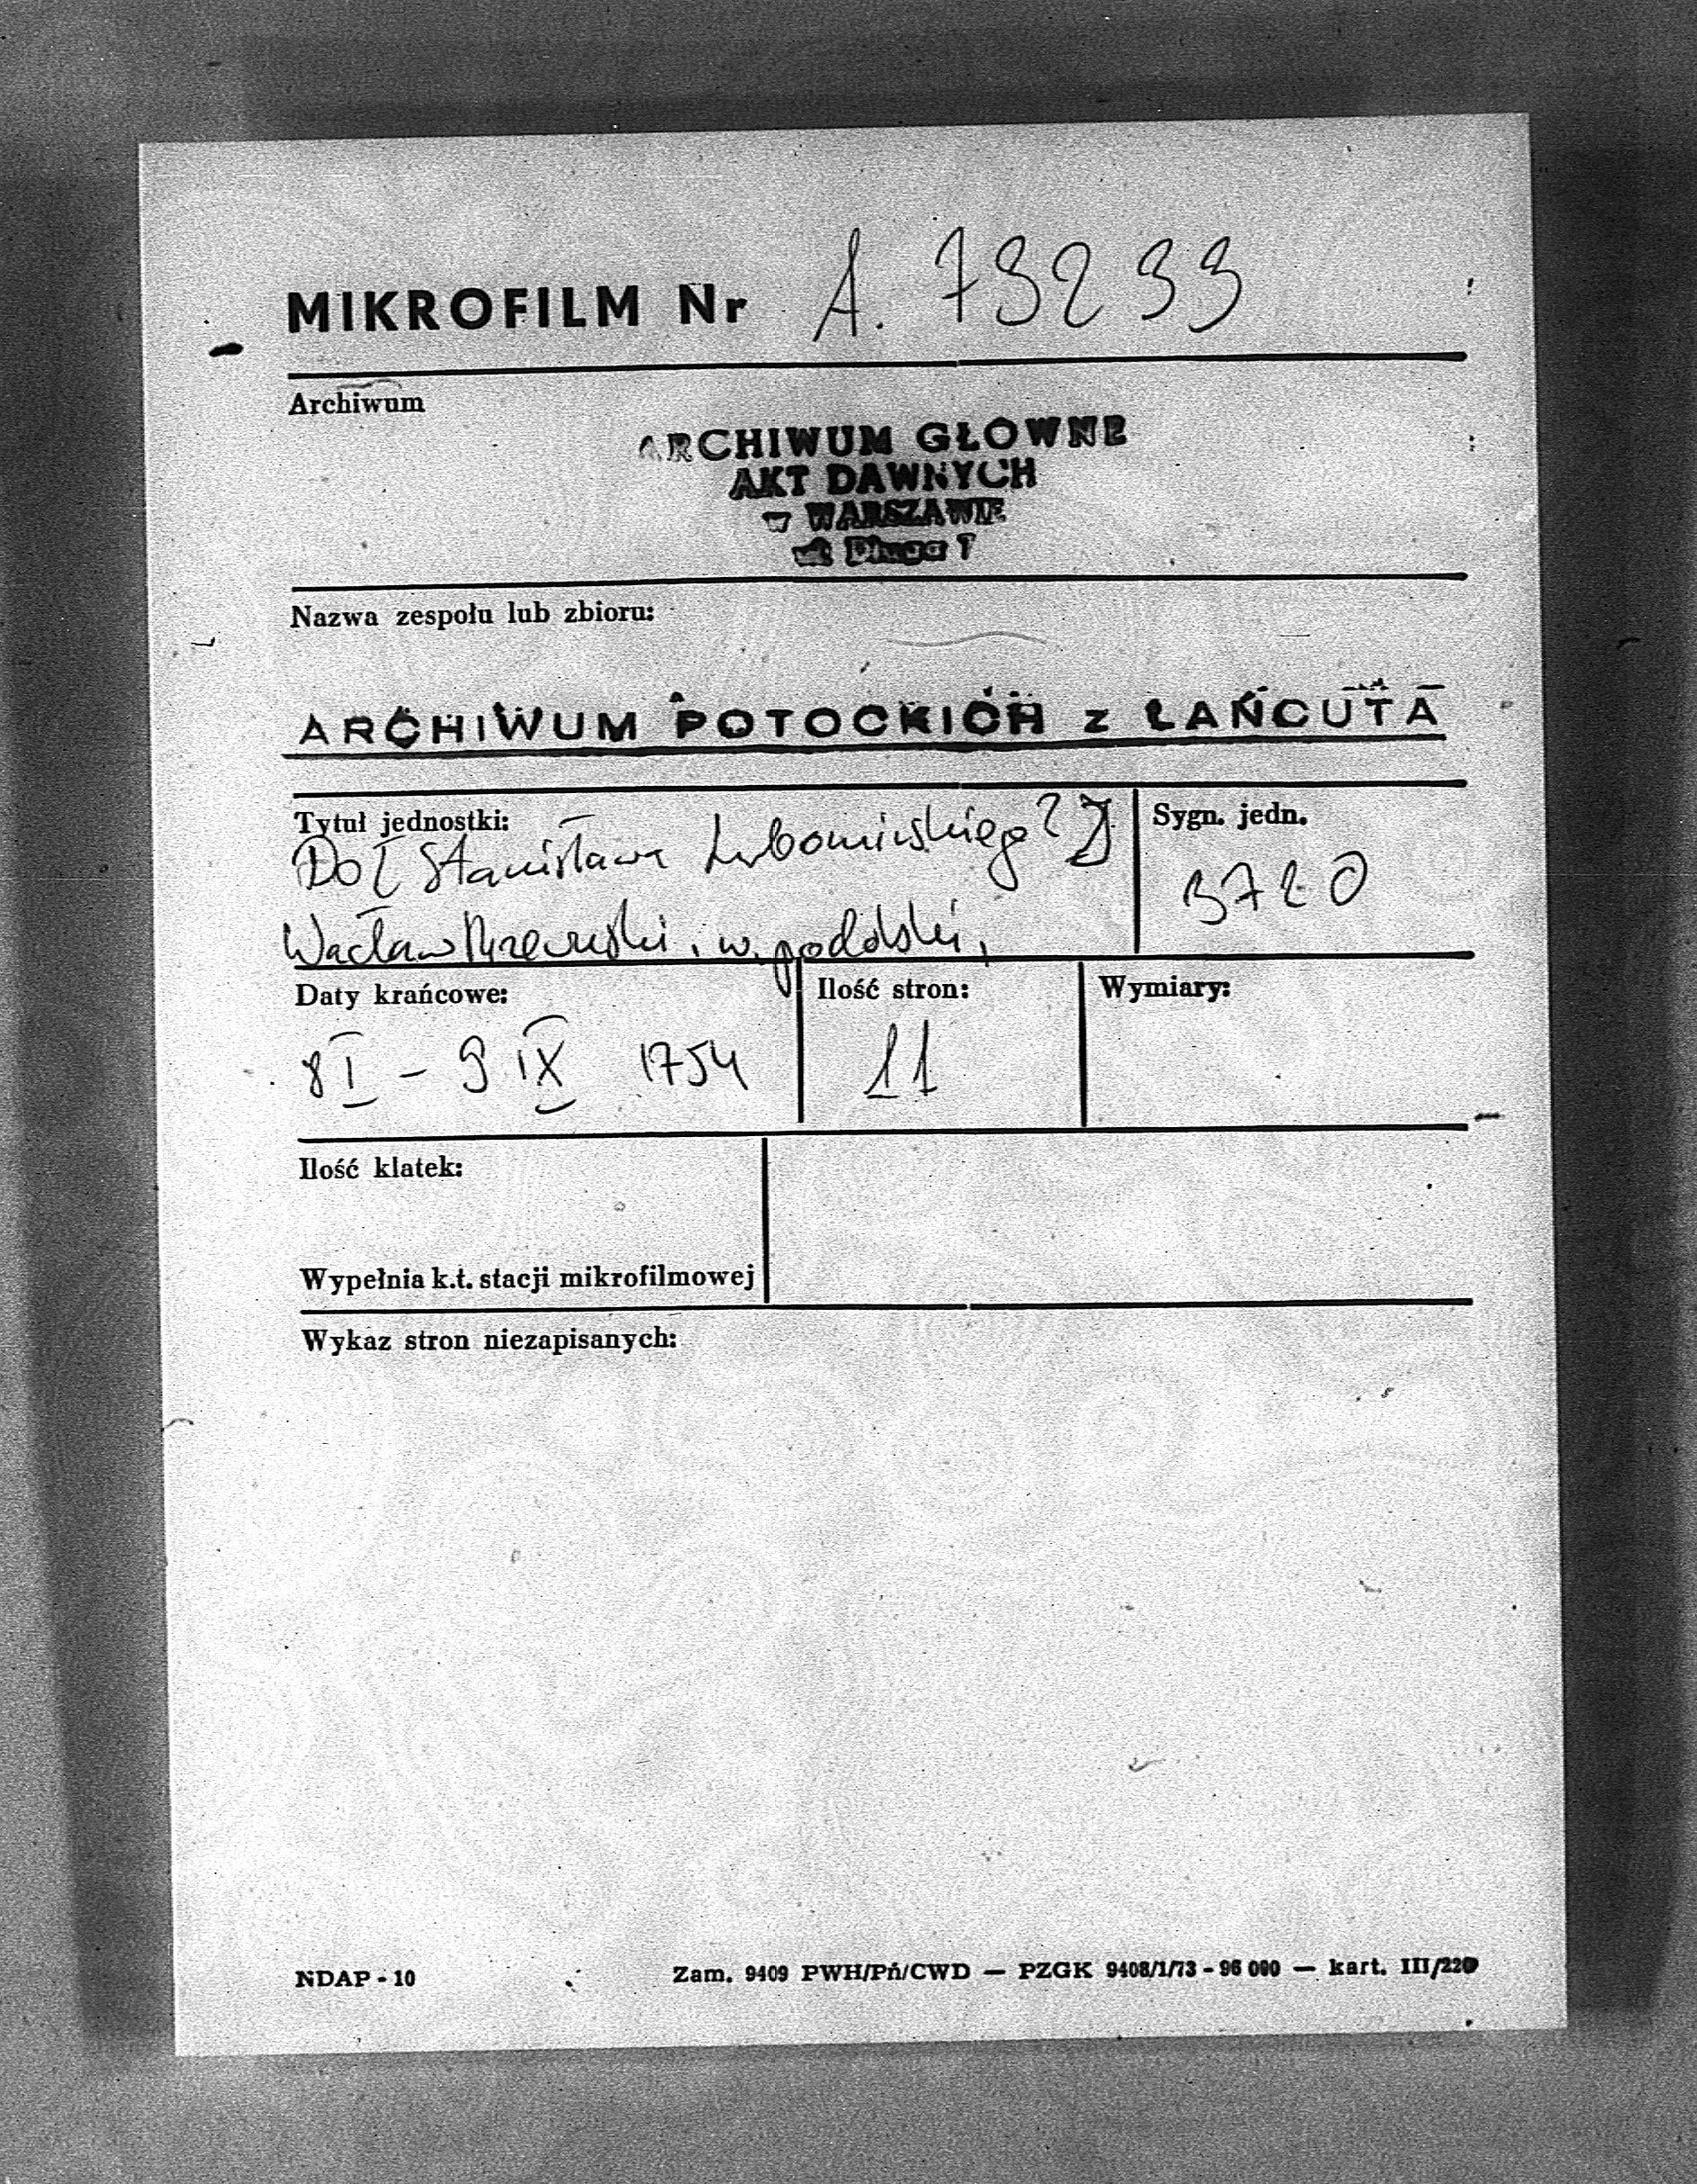 MIKROFILM Nr A. 79299
Archiwum
ARCHIWUM GŁÓWNE
AKT DAWNYCH
w WARSZAWIE
ul. Długa 7
Nazwa zespołu lub zbioru:
ARCHIWUM POTOCKICH z ŁAŃCUTA
Tytuł jednostki:
Do [Stanisława Lubomirskiego?]
Wacław Rzewuski, w. podolski,
Sygn. jedn.
3720
Daty krańcowe:
8 I - 9 IX 1754
Ilość stron:
11
Wymiary:
Ilość klatek:
Wypełnia k.t. stacji mikrofilmowej
Wykaz stron niezapisanych:
NDAP - 10
Zam. 9409 PWH/Pń/CWD — PZGK 9408/1/73 - 96 000 — kart. III/220